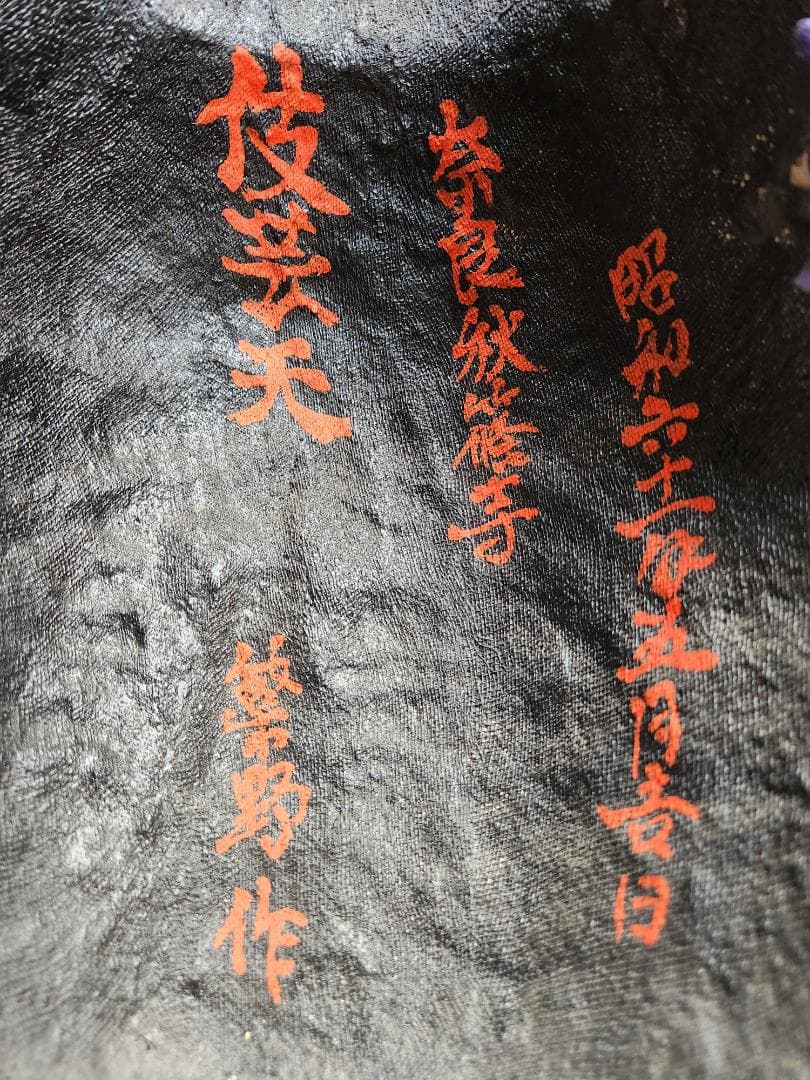 昭和六十一年五月吉日
奈良秋篠寺
伎芸天
繁野作